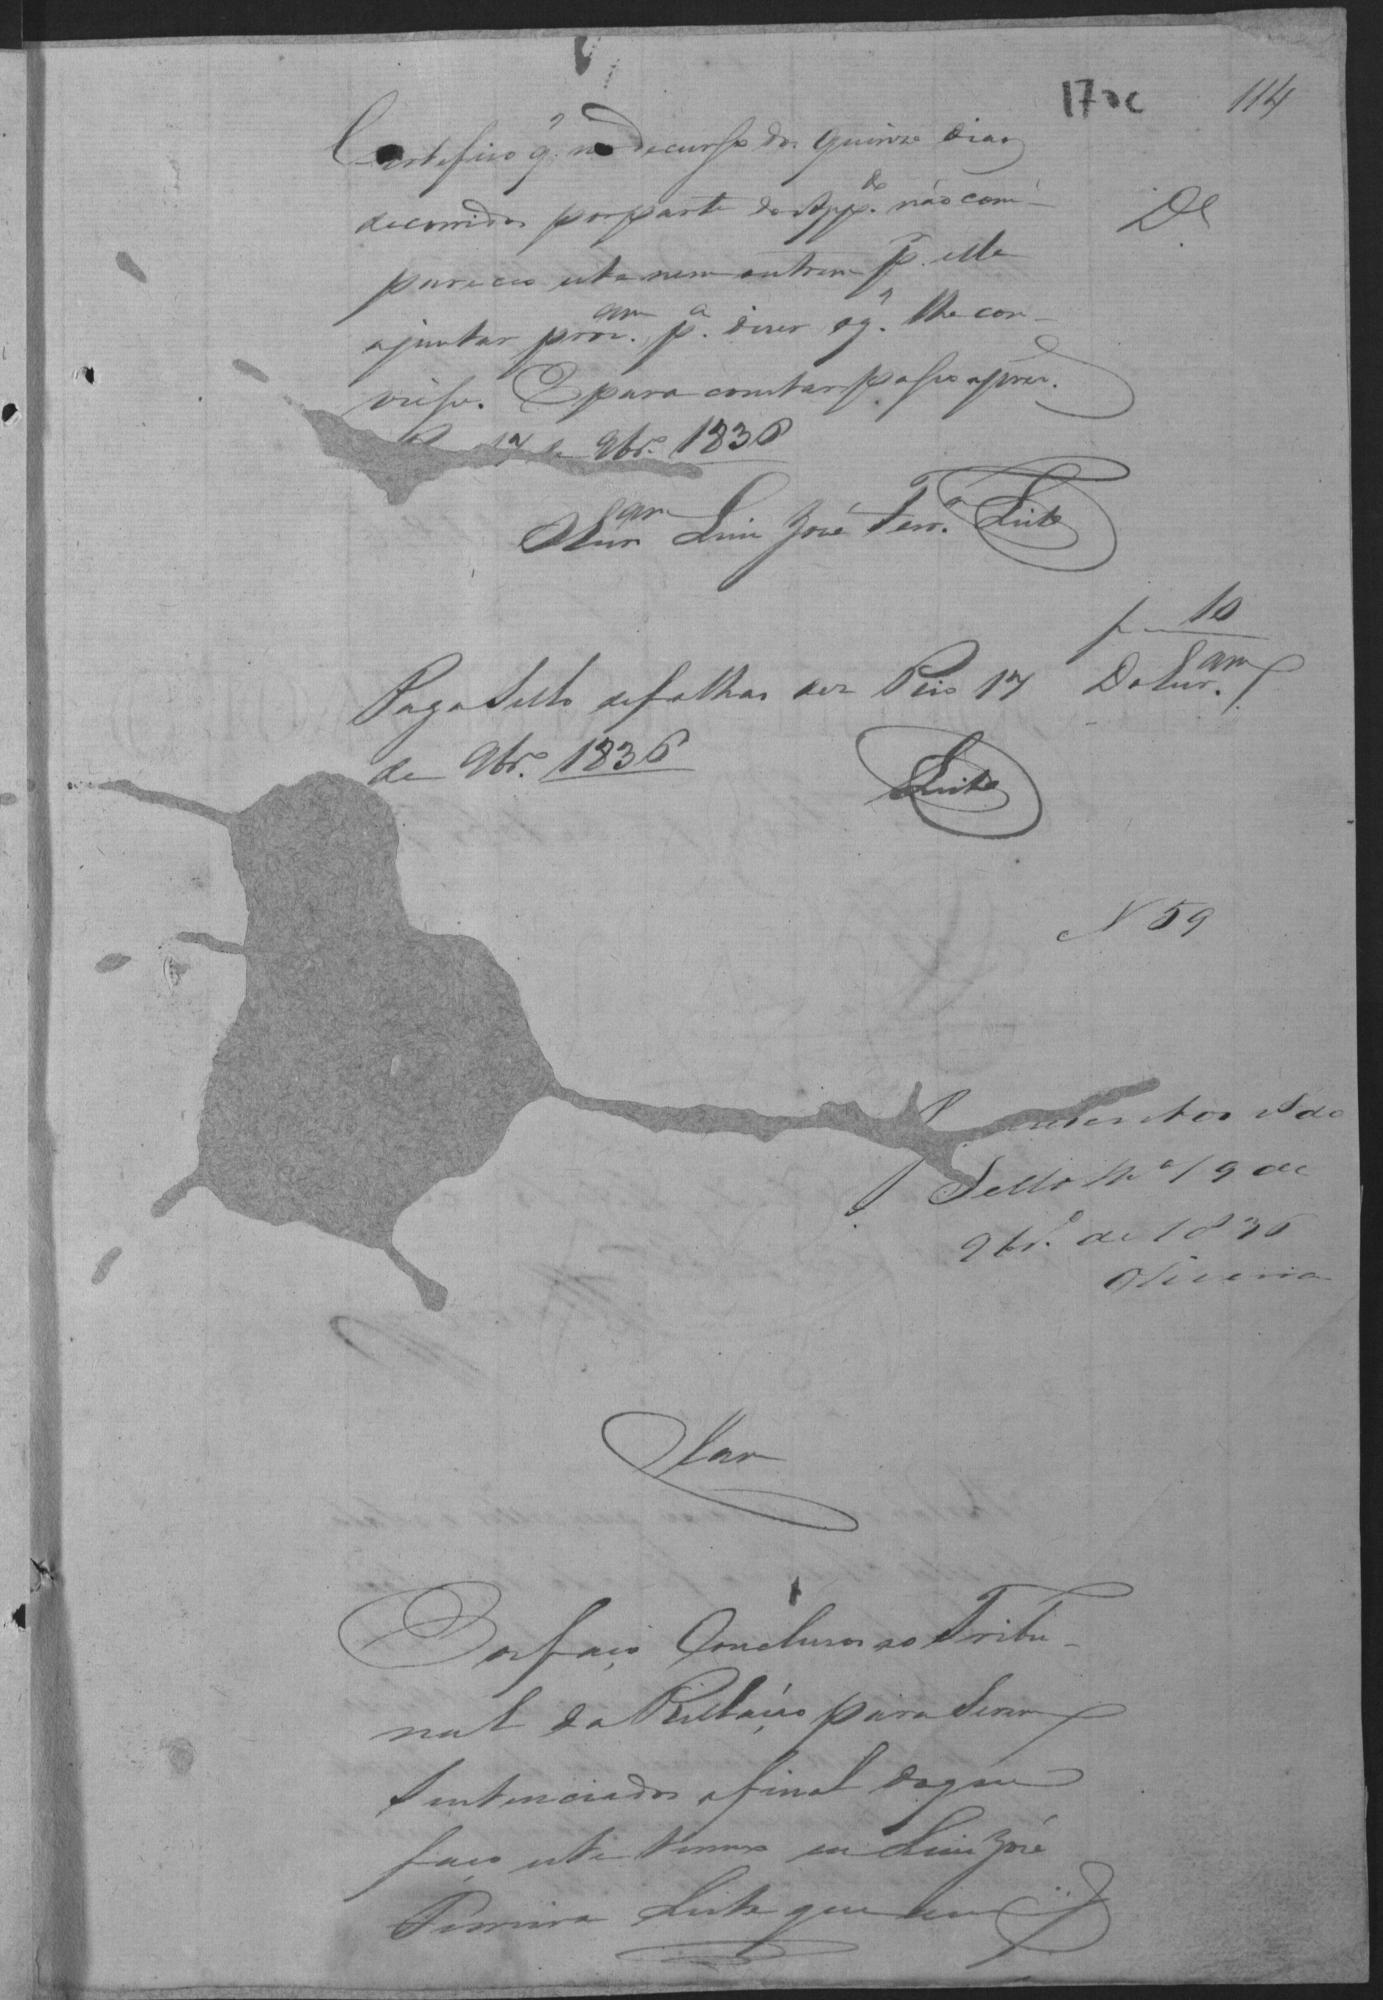 114
Certefico q. no decurso dos quinze dias
decorridos por parte do App.do não com-
pareceo este nem outrem p.r elle
ajuntar procam. p.a dizer o q. lhe con-
viesse. E para constar passo a prez.
17 de 9br.o 1836
O Escr.am Luiz José Ferr.a Leite
10
Paga Sello de folhas dez Rio 17
de 9br.o 1836
Do Escr.am
Leite
N 59
Sello 19 de
9br.o de 1836
Oliveira
Os faço Concluzos ao Tribu-
nal da Rellação para Serem
Sentenciados afinal do que
faço este termo eu Luiz José
Ferreira Leite que